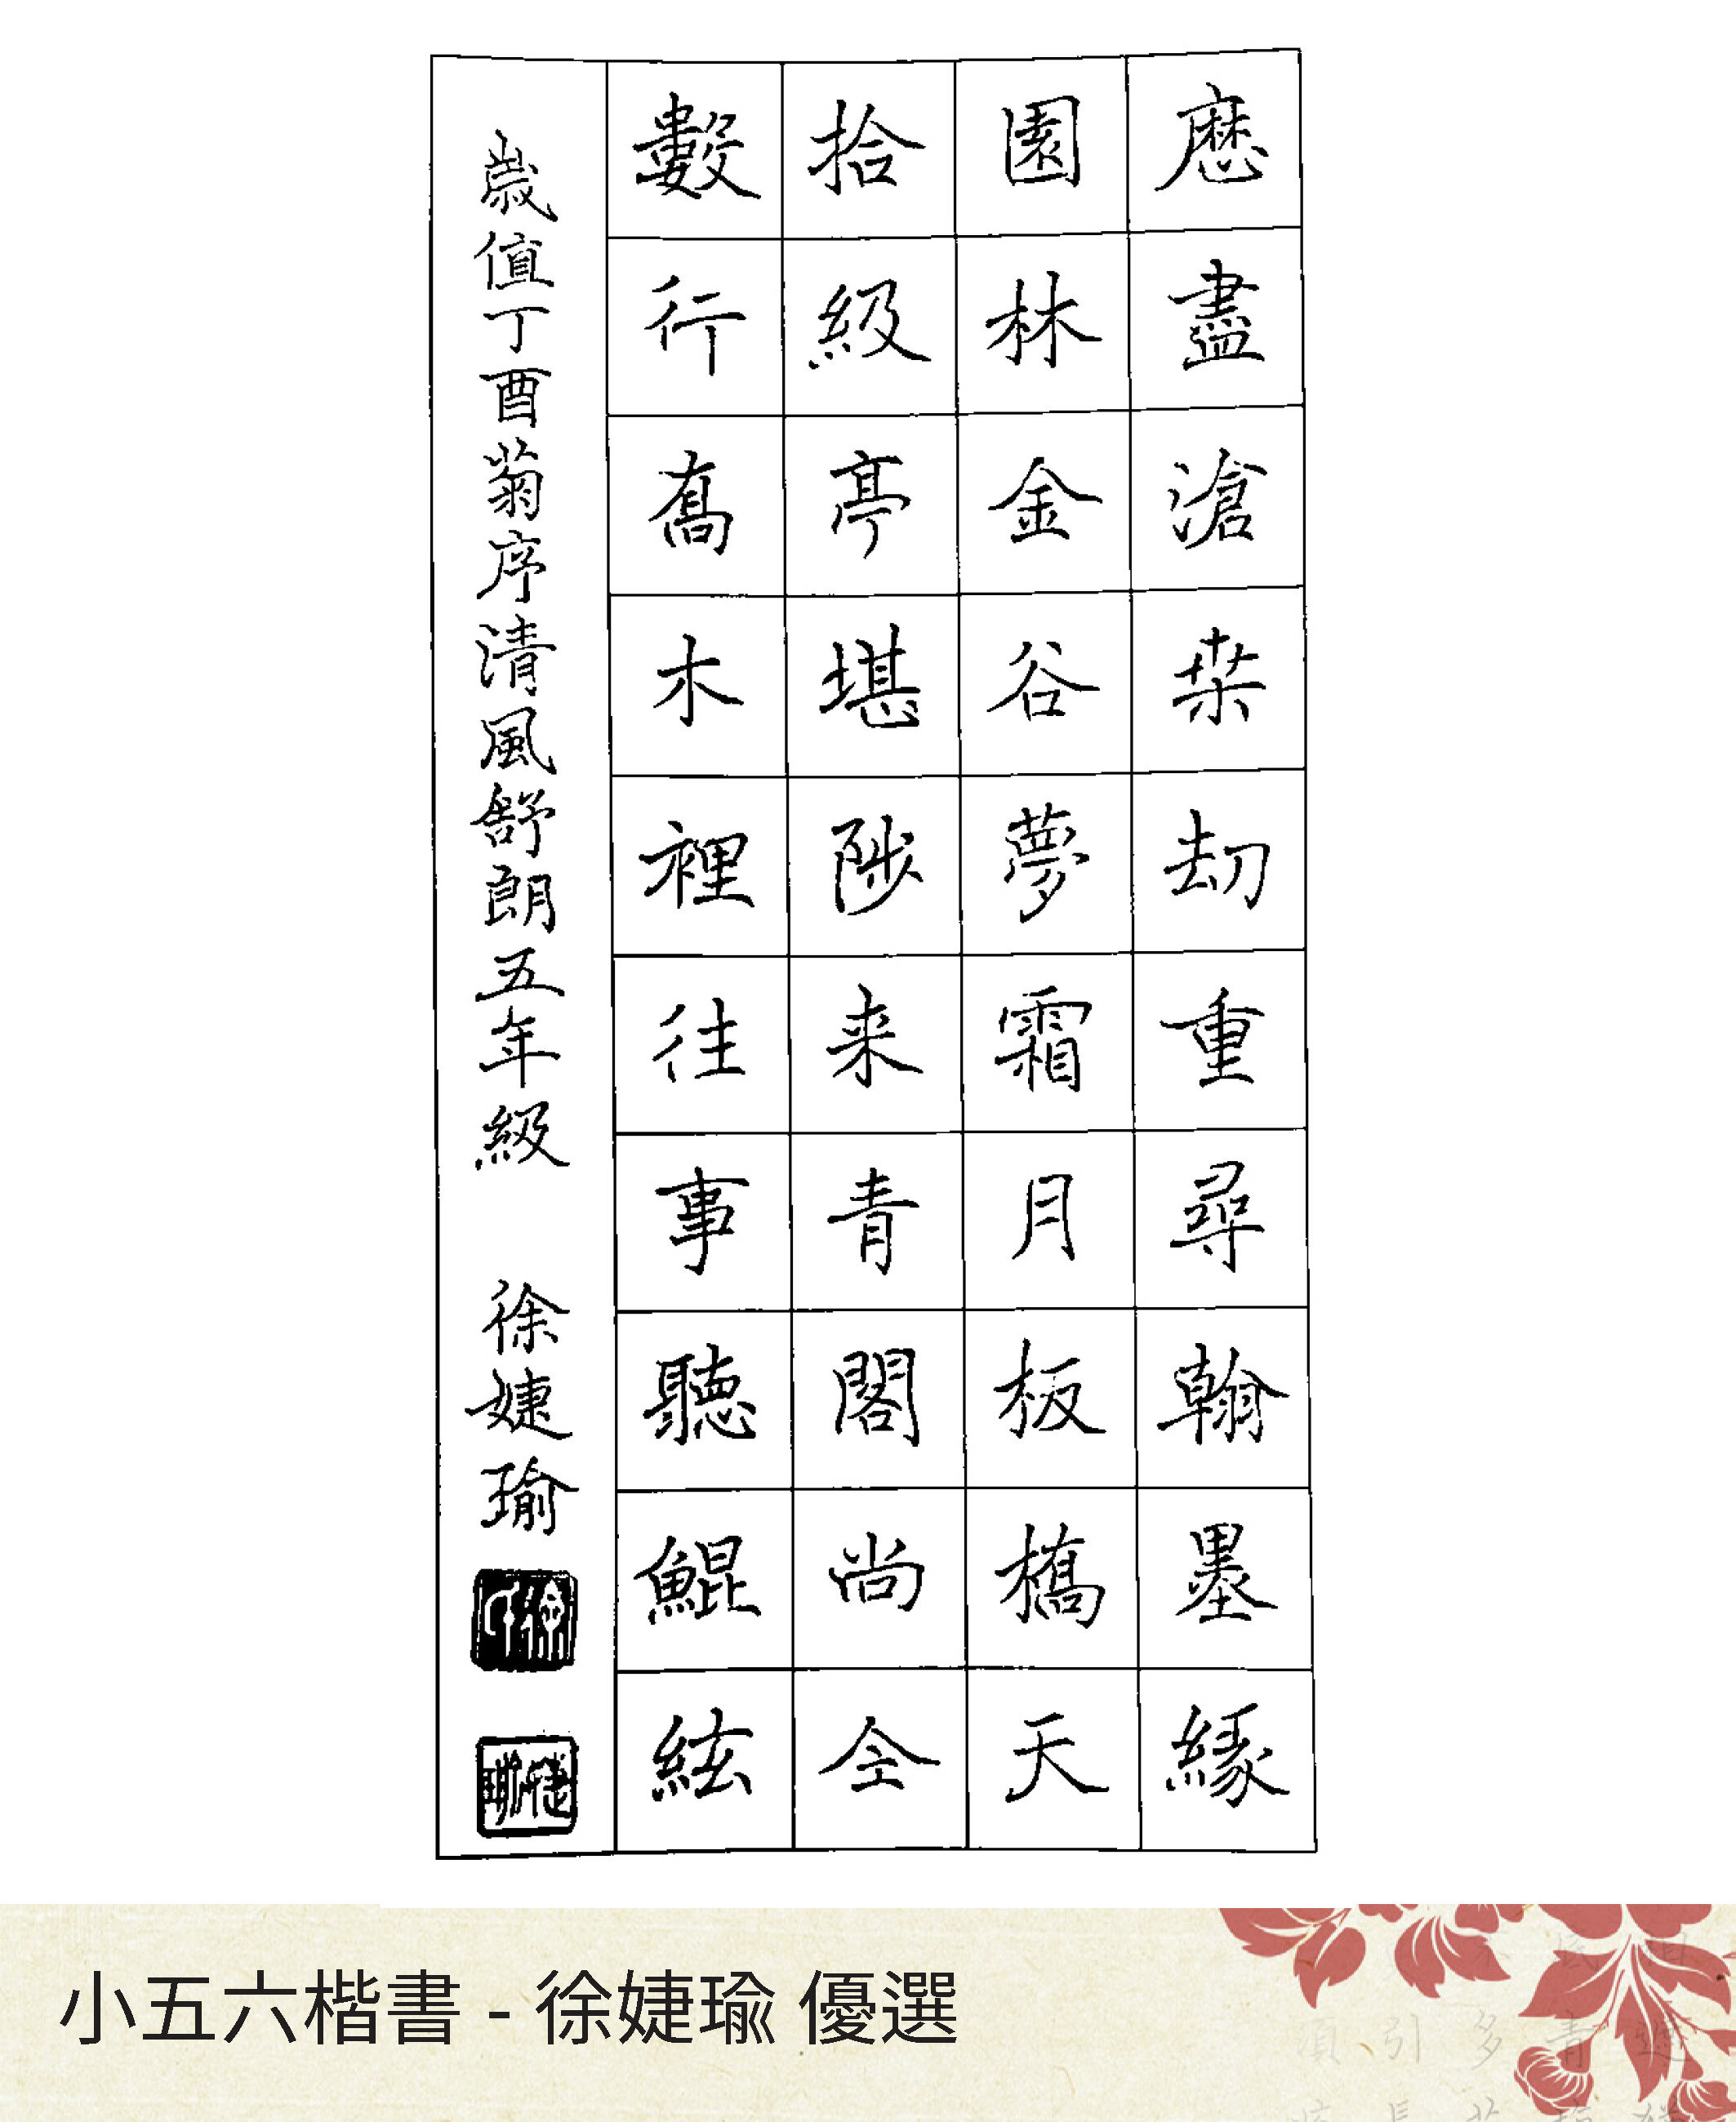 歷盡滄桒劫重尋翰墨緣
園林金谷夢霜月板橋天
拾級亭堪陟来青閣尚全
數行喬木裡往事聽鯤絃
歲值丁酉菊序清風舒朗五年級 徐婕瑜
小五六楷書 - 徐婕瑜 優選